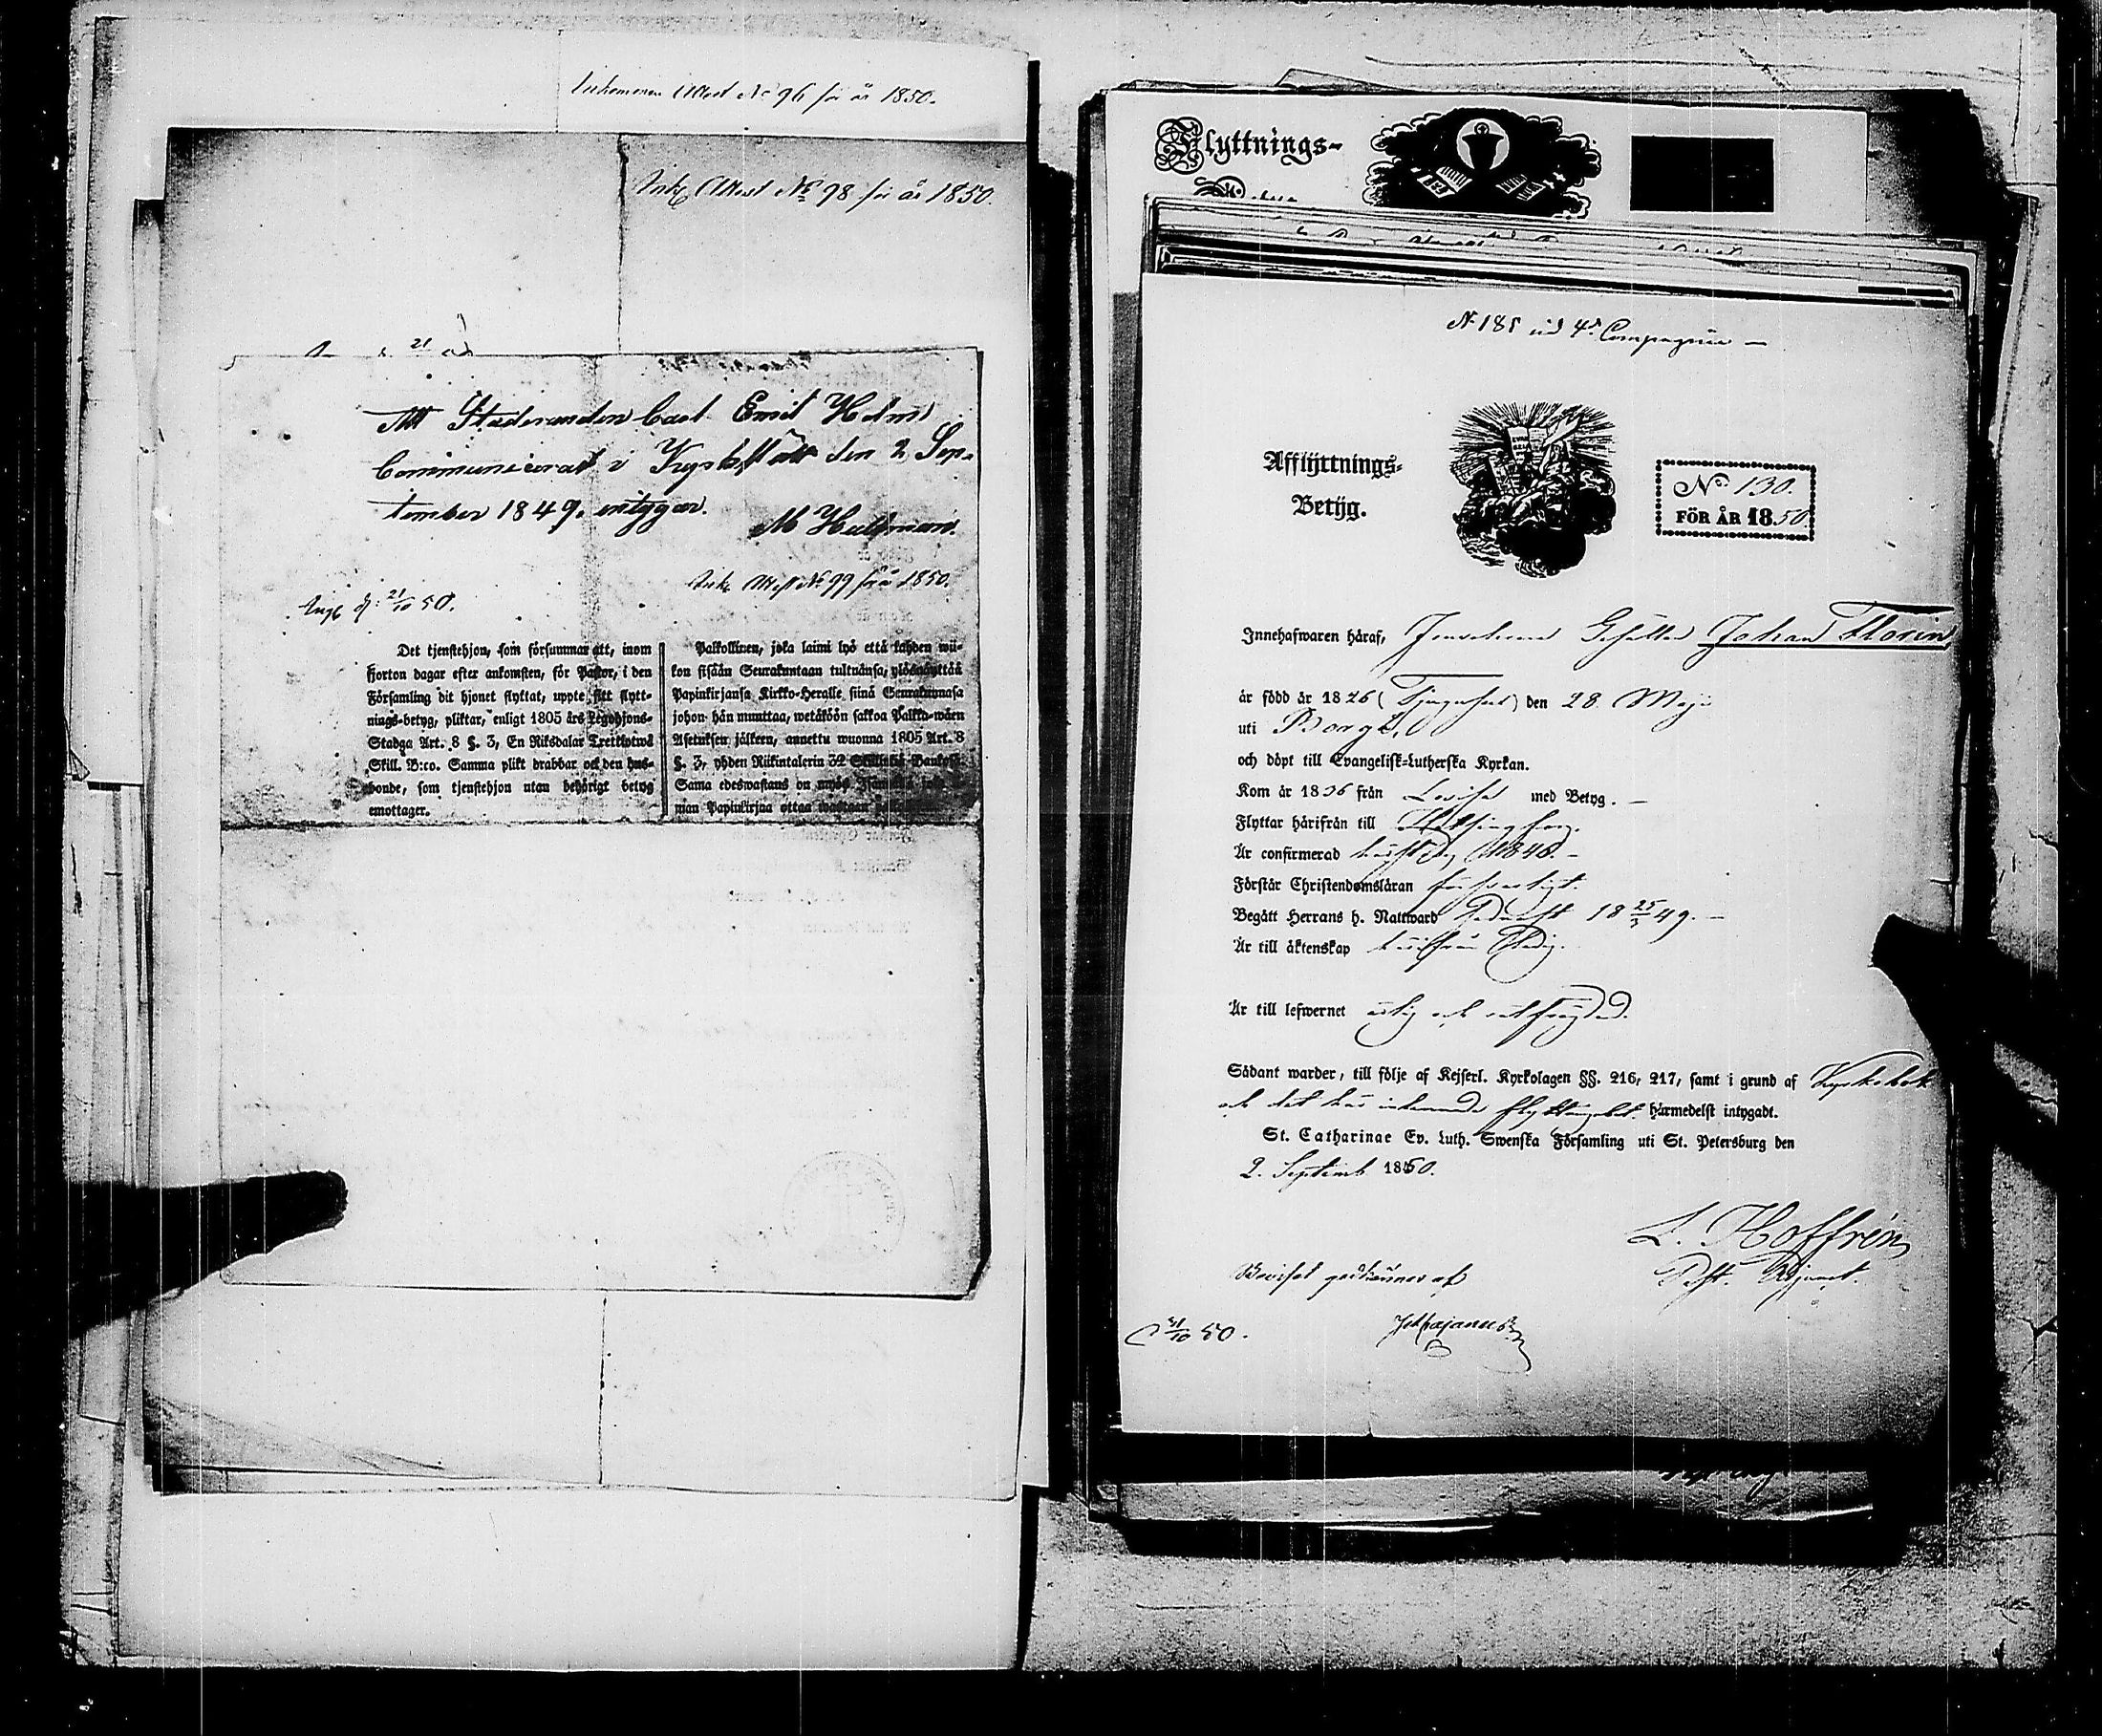 Inkommen Attest No 96 för år 1850.
Ink. Attest No 98 för år 1850.
Att Studeranden Carl Emil Holm
Communicerat i den 2 Sep-
tember 1849, intygar.
M Hellman.
Ink. Attest No 99 för år 1850.
21/10 50.
Det tjenstehjon, som försummar att, inom
fjorton dagar efter ankomsten, för Pastor, i den
Församling dit hjonet flyttat, uppte sitt flytt-
nings-betyg, pliktar, enligt 1805 års Legohjons-
Stadga Art. 8 §. 3, En Riksdalar Trettiotwå
Skill. B:co. Samma plikt drabbar ock den hus-
bonde, som tjenstehjon utan behörigt betyg
emottager.
Palkollinen, joka laimi lyö että kahden wii-
kon sisään Seurakuntaan tultuansa, ylösnäyttää
Papinkirjansa Kirkko-Heralle siinä Seurakunnasa
johon hän muuttaa, wetäköön sakkoa Palkka-wäen
Asetuksen jälkeen, annettu wuonna 1805 Art. 8
§. 3, yhden Riikintalerin 32 Skillinkiä Bankosa
Sama edeswastaus on myös
män Papinkirjaa ottaa wastaan
Flyttnings-
N. 185 vid 4de Compagnie
Afflyttnings-
Betyg.
No. 130.
FÖR ÅR 1850
Innehafwaren häraf, Gesällen Johan Florin
är född år 1826 () den 28 Maji
uti Borgå,
och döpt till Evangelisk-Lutherska Kyrkan.
Kom år 1836 från Lovisa med Betyg. —
Flyttar härifrån till Helsingfors.
Är confirmerad 1846. —
Förstår Christendomsläran försvarligt.
Begått Herrans h. Nattward sednast 18 25/3 49. —
Är till äktenskap härifrån ledig.
Är till lefwernet ärlig och välfrejdad.
Sådant warder, till följe af Kejserl. Kyrkolagen §§. 216, 217, samt i grund af Kyrkobok
och det här inlemnade härmedelst intygadt.
St. Catharinae Ev. Luth. Swenska Församling uti St. Petersburg den
2. Septemb 1850.
L. Hoffrén
Past. Adjunct.
Beviset godkännes af
31/10 50.